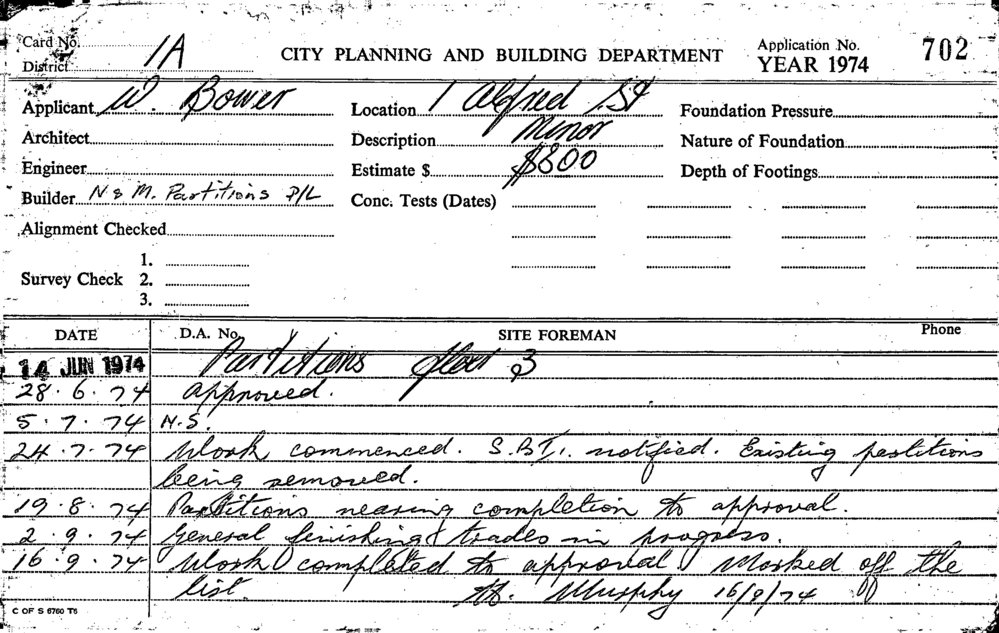 Card No.
District 1A
CITY PLANNING AND BUILDING DEPARTMENT
Application No. 702
YEAR 1974
Applicant W. Bower
Location 1 Alfred St
Foundation Pressure
Architect
Description Minor
Nature of Foundation
Engineer
Estimate $ $800
Depth of Footings
Builder N & M. Partitions P/L
Conc. Tests (Dates)
Alignment Checked
Survey Check 1.
2.
3.
DATE D.A. No. SITE FOREMAN Phone
14 JUN 1974 Partitions floor 3
28.6.74 Approved.
5.7.74 N.S.
24.7.74 Work commenced. notified. Existing partitions
being removed.
19.8.74 Partitions nearing completion to approval.
2.9.74 General finishing trades in progress.
16.9.74 Work completed to approval Marked off the
list. Murphy 16/9/74
C OF S 6760 T6